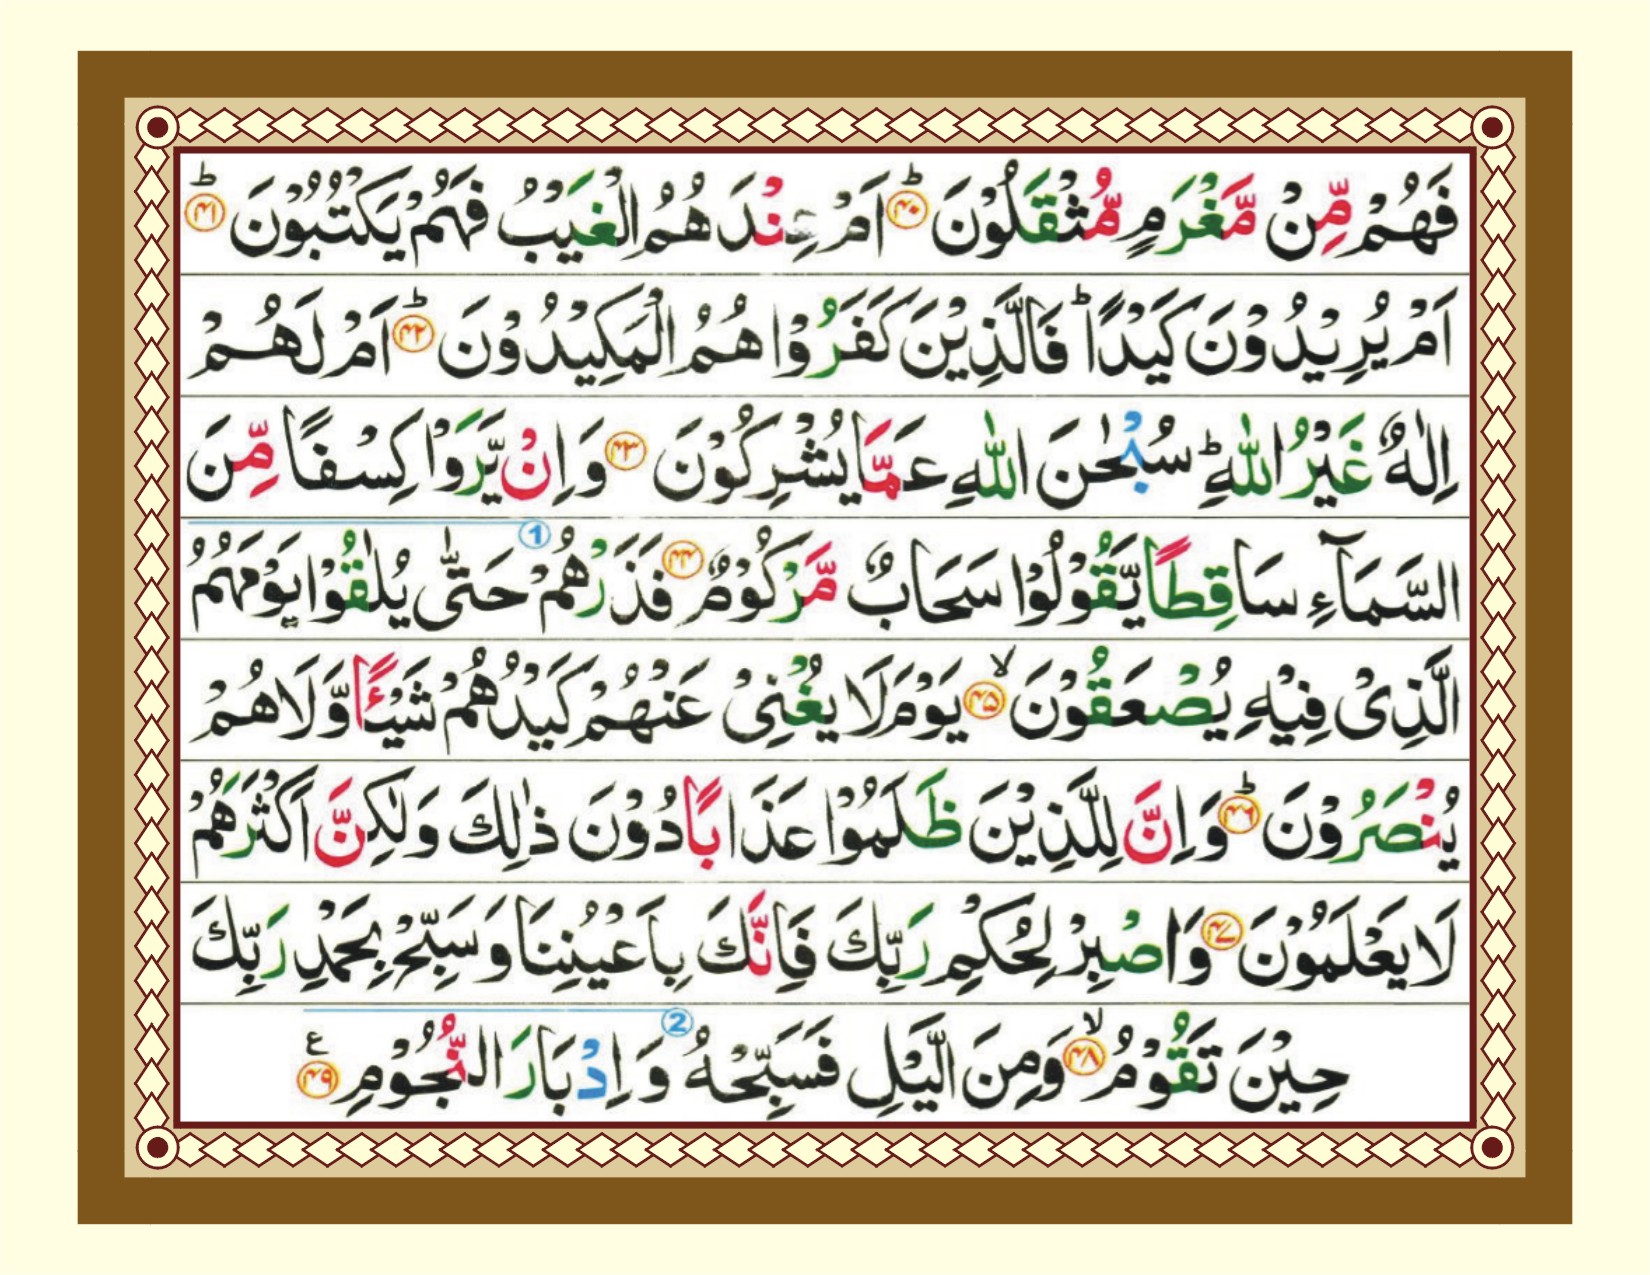 فَهُمْ مِّنْ مَّغْرَمٍ مُّثْقَلُوْنَ ؕ۝۴۰ اَمْ عِنْدَهُمُ الْغَيْبُ فَهُمْ يَكْتُبُوْنَ ؕ۝۴۱
اَمْ يُرِيْدُوْنَ كَيْدًا ؕ فَالَّذِيْنَ كَفَرُوْا هُمُ الْمَكِيْدُوْنَ ؕ۝۴۲ اَمْ لَهُمْ
اِلٰهٌ غَيْرُ اللّٰهِ ؕ سُبْحٰنَ اللّٰهِ عَمَّا يُشْرِكُوْنَ ۝۴۳ وَاِنْ يَّرَوْا كِسْفًا مِّنَ
السَّمَآءِ سَاقِطًا يَّقُوْلُوْا سَحَابٌ مَّرْكُوْمٌ ۝۴۴ فَذَرْهُمْ ① حَتّٰى يُلٰقُوْا يَوْمَهُمُ
الَّذِىْ فِيْهِ يُصْعَقُوْنَ ۙ۝۴۵ يَوْمَ لَا يُغْنِىْ عَنْهُمْ كَيْدُهُمْ شَيْـًٔا وَّلَا هُمْ
يُنْصَرُوْنَ ؕ۝۴۶ وَاِنَّ لِلَّذِيْنَ ظَلَمُوْا عَذَابًا دُوْنَ ذٰلِكَ وَلٰكِنَّ اَكْثَرَهُمْ
لَا يَعْلَمُوْنَ ۝۴۷ وَاصْبِرْ لِحُكْمِ رَبِّكَ فَاِنَّكَ بِاَعْيُنِنَا وَسَبِّحْ بِحَمْدِ رَبِّكَ
حِيْنَ تَقُوْمُ ۙ۝۴۸ وَمِنَ الَّيْلِ فَسَبِّحْهُ ② وَاِدْبَارَ النُّجُوْمِ ۝۴۹ ع